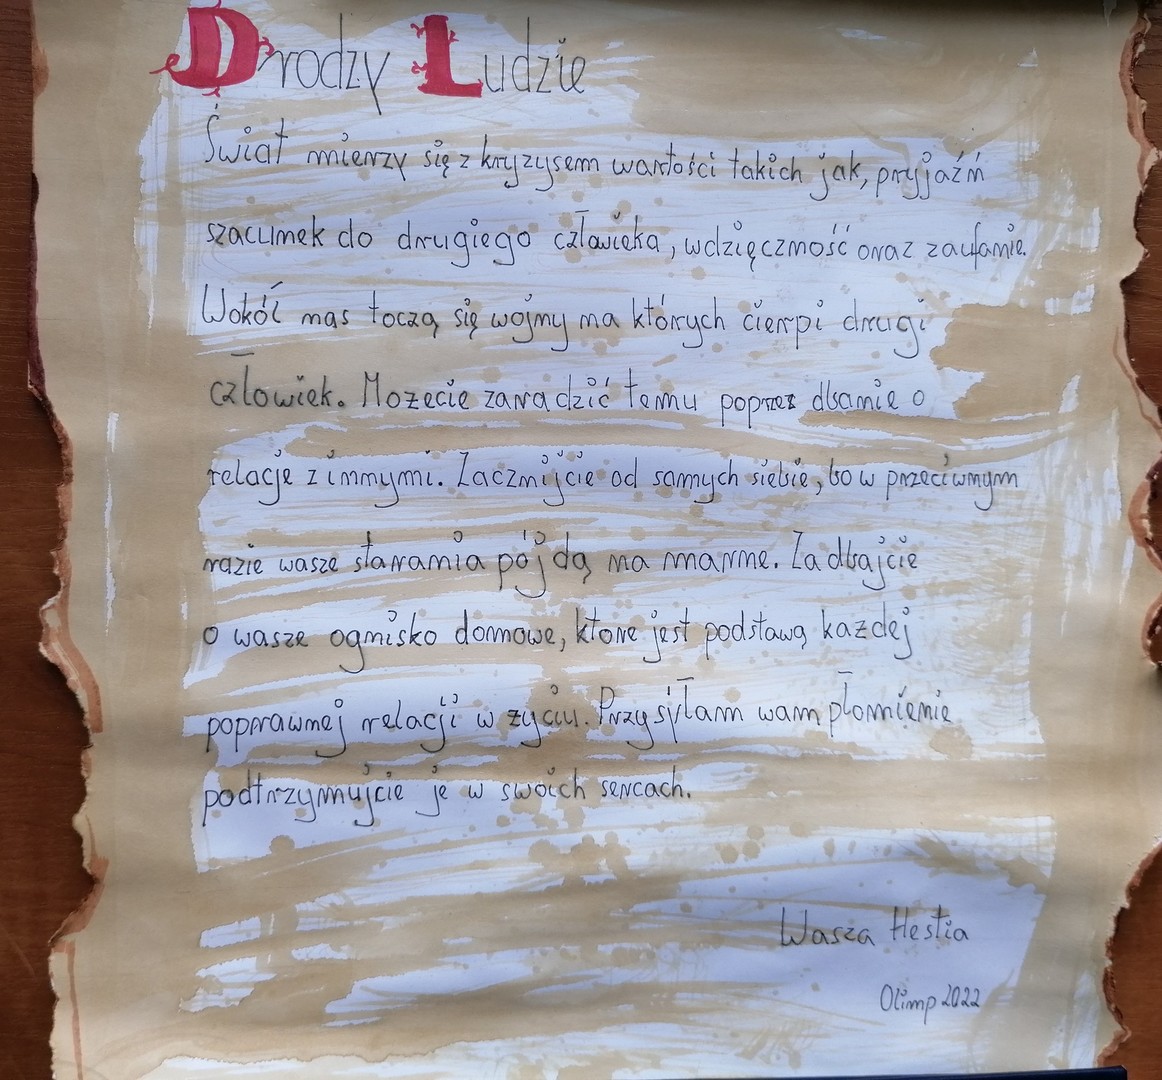 Drodzy Ludzie
Świat mierzy się z kryzysem wartości takich jak, przyjaźń
szacunek do drugiego człowieka, wdzięczność oraz zaufanie.
Wokół nas toczą się wojny na których cierpi drugi
człowiek. Możecie zaradzić temu poprzez dbanie o
relacje z innymi. Zacznijcie od samych siebie, bo w przeciwnym
razie wasze starania pójdą na marne. Zadbajcie
o wasze ognisko domowe, które jest podstawą każdej
poprawnej relacji w życiu. Przysyłam wam płomienie
podtrzymujcie je w swoich sercach.
Wasza Hestia
Olimp 2022